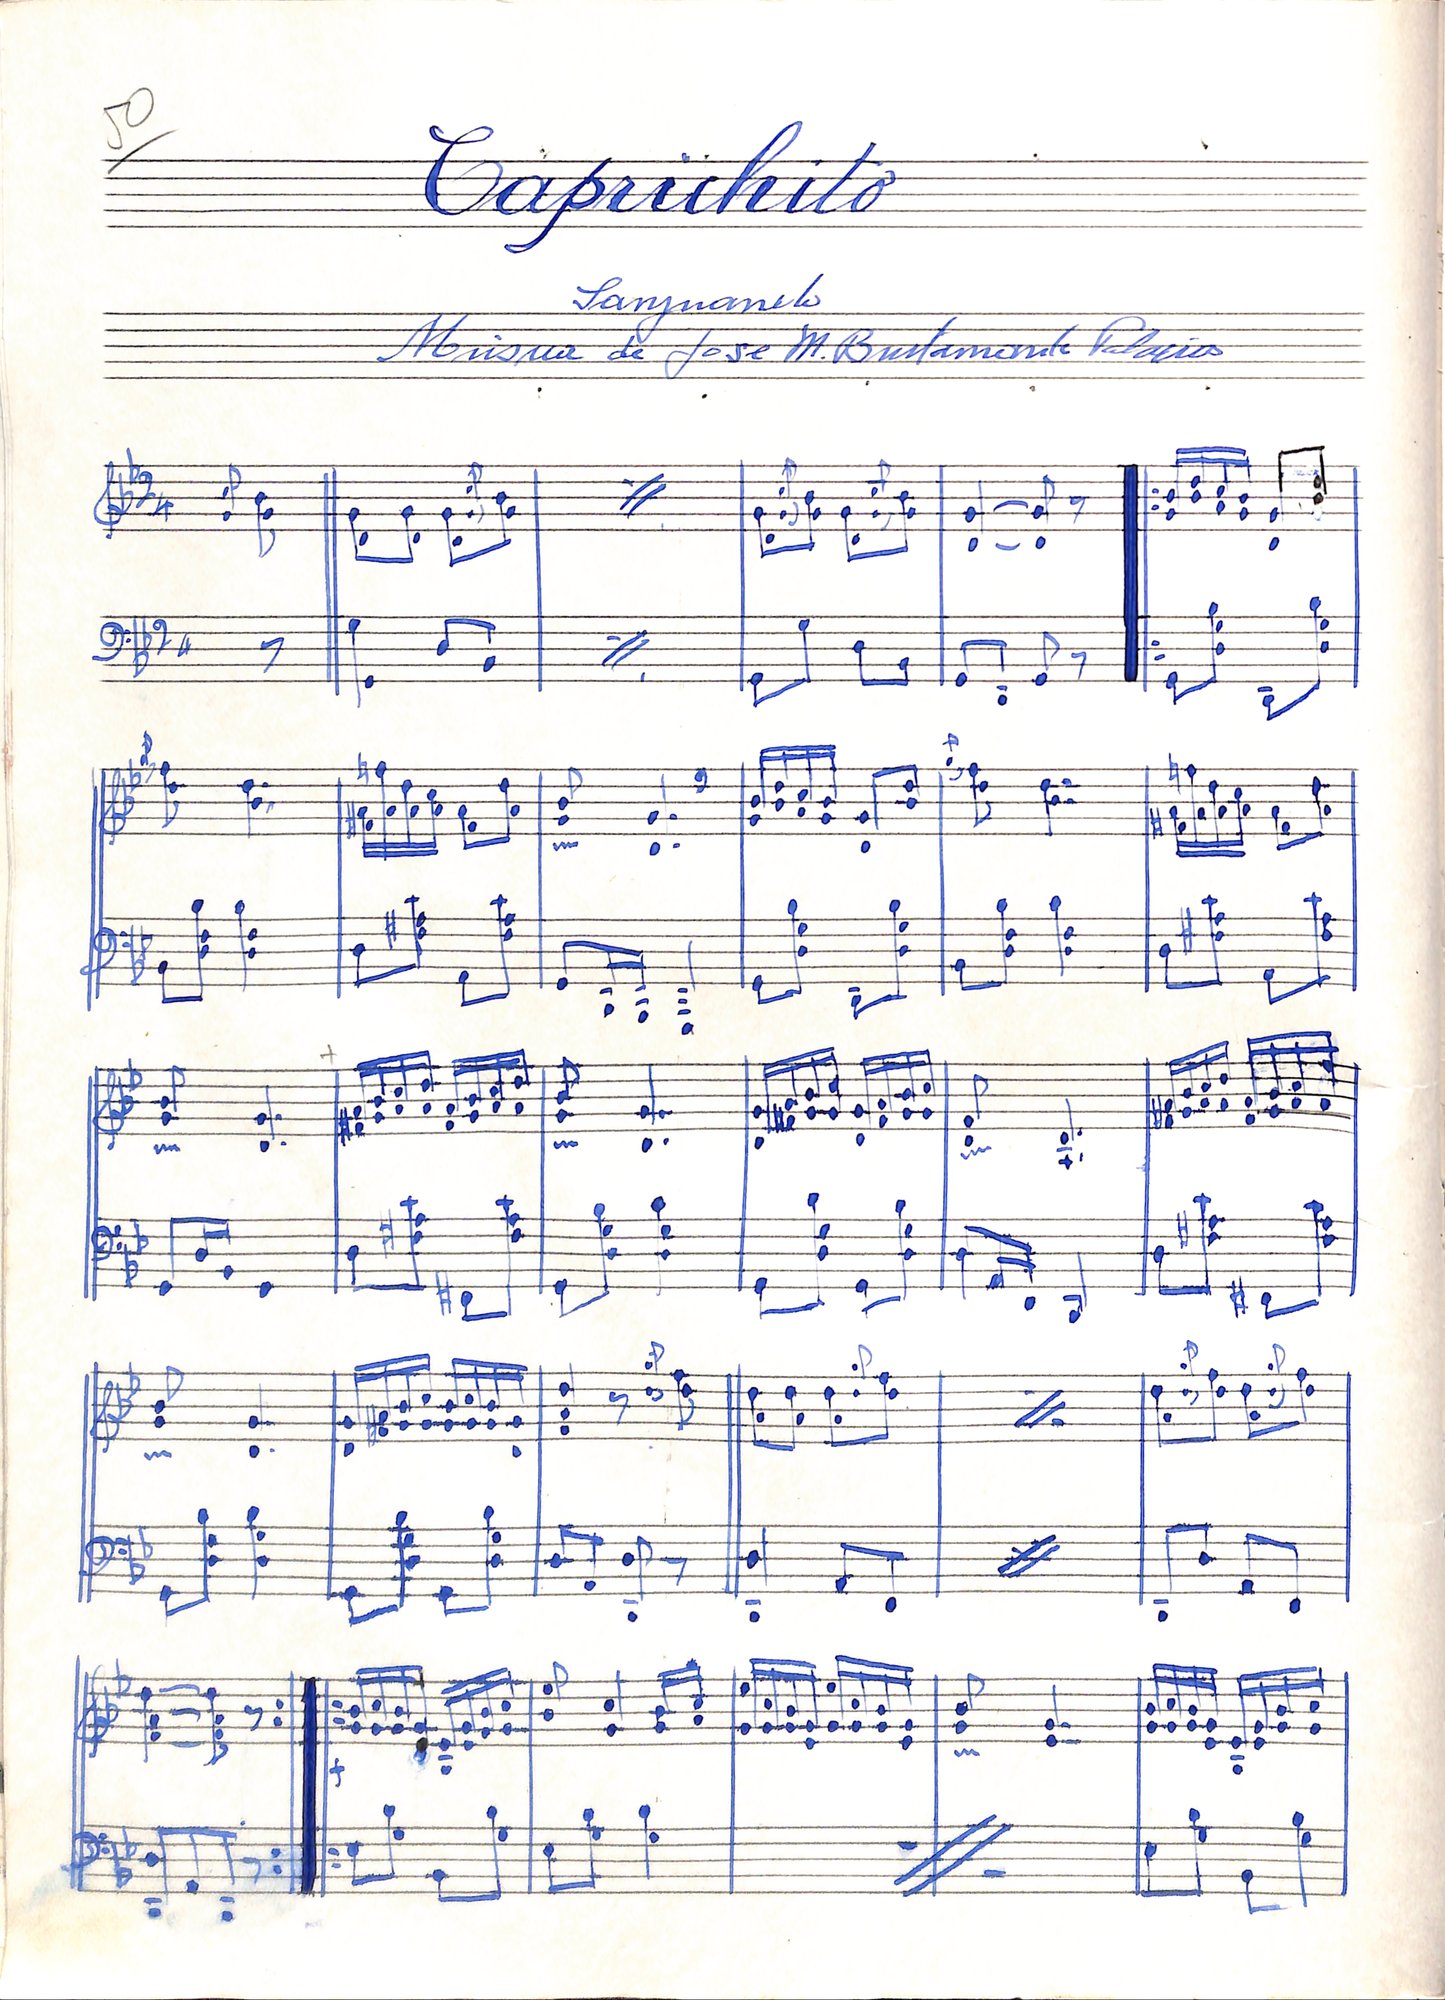 50
Caprichito
Sanjuanito
Música de Jose M. Bustamante Palacios
2 4
2 4